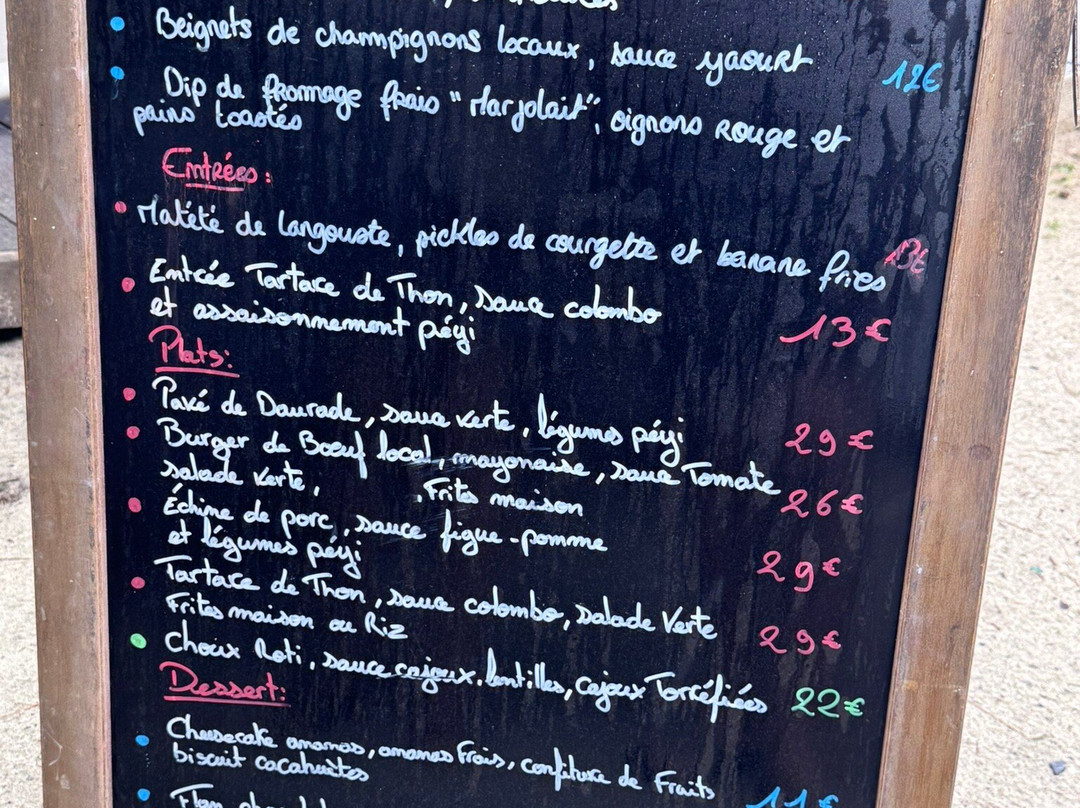 Beignets de champignons locaux, sauce yaourt 12€
Dip de fromage frais "Marjolait", oignons rouge et
pains toastés
Entrées:
Matété de langouste, pickles de courgette et banane fries 13€
Entrée Tartare de Thon, sauce colombo
et assaisonnement péyi 13€
Plats:
Pavé de Daurade, sauce verte, légumes péyi 29€
Burger de Boeuf local, mayonaise, sauce Tomate
salade verte, , Frites maison 26€
Échine de porc, sauce figue-pomme
et légumes péyi 29€
Tartare de Thon, sauce colombo, salade Verte
Frites maison ou Riz 29€
Choux Roti, sauce cajoux, lentilles, cajoux Torréfiées 22€
Dessert:
Cheesecake ananas, ananas frais, confiture de Fruits
biscuit cacahuètes 11€
Flan